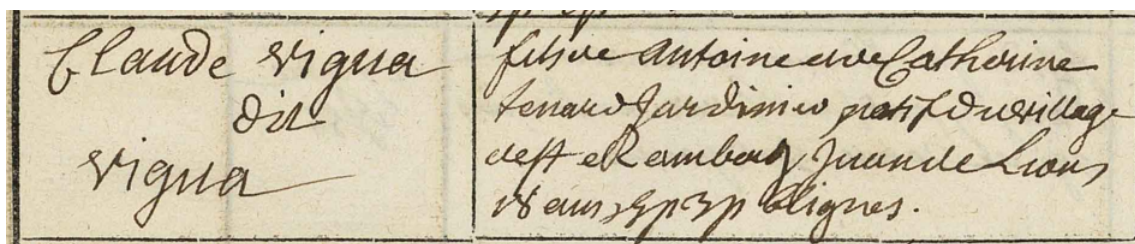 Claude vigna
dit
vigna
fils de Antoine et de Catherine
tenard Jardinier natif du village
de st Rambert Juan de Lions
18 ans, 5p 3p lignes.